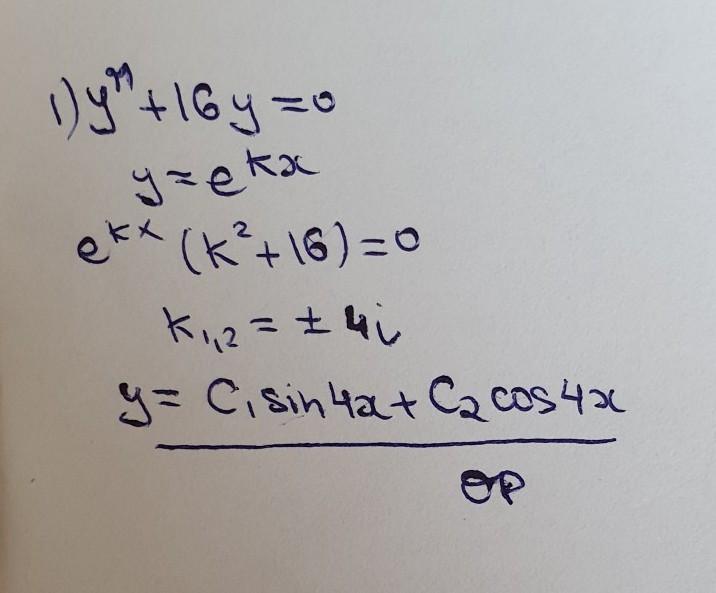 1) y'' + 16y = 0
y = e^{kx}
e^{kx} (k² + 16) = 0
k₁,₂ = ± 4i
y = C₁ sin 4x + C₂ cos 4x
ОР